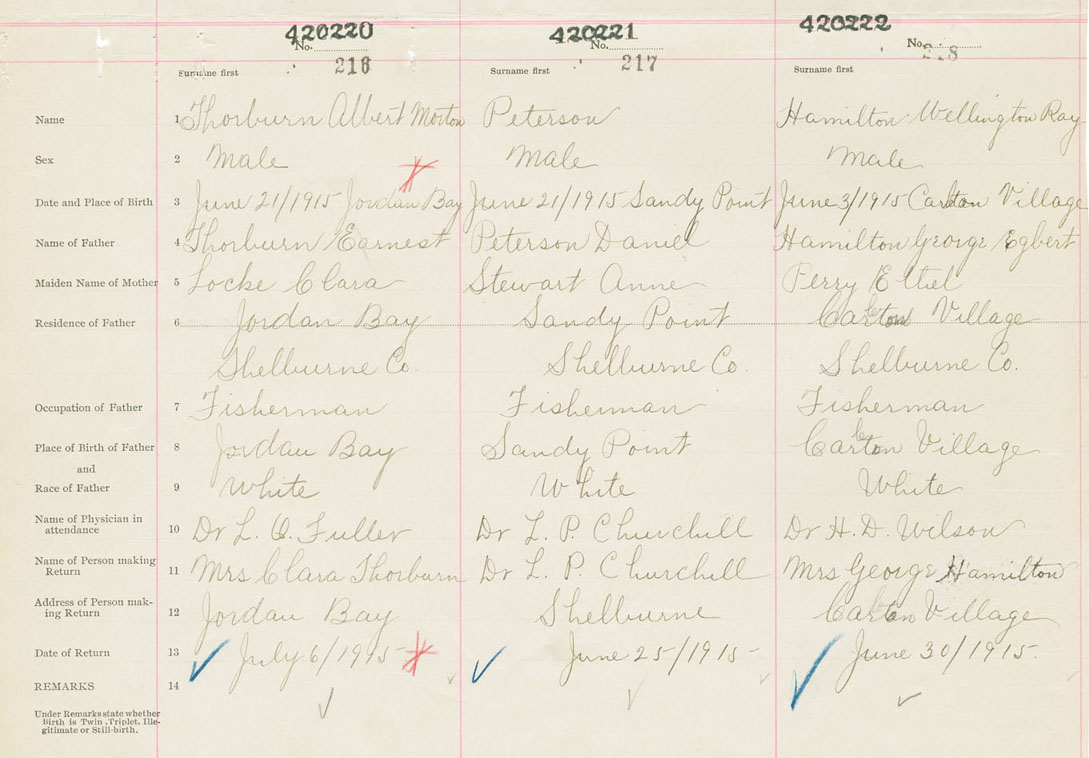 420220 420221 420222
No. No. No.
216 217 218
Surname first Surname first Surname first
Name 1 Thorburn Albert Morton Peterson Hamilton Wellington Ray
Sex 2 Male Male Male
Date and Place of Birth 3 June 21/1915 Jordan Bay June 21/1915 Sandy Point June 3/1915 Carleton Village
Name of Father 4 Thorburn Earnest Peterson Daniel Hamilton George Egbert
Maiden Name of Mother 5 Locke Clara Stewart Anne Perry Ethel
Residence of Father 6 Jordan Bay Sandy Point Carleton Village
Shelburne Co. Shelburne Co. Shelburne Co.
Occupation of Father 7 Fisherman Fisherman Fisherman
Place of Birth of Father 8 Jordan Bay Sandy Point Carleton Village
and
Race of Father 9 White White White
Name of Physician in
attendance 10 Dr L. O. Fuller Dr L. P. Churchill Dr H. D. Wilson
Name of Person making
Return 11 Mrs Clara Thorburn Dr L. P. Churchill Mrs George Hamilton
Address of Person mak-
ing Return 12 Jordan Bay Shelburne Carleton Village
Date of Return 13 July 6/1915 June 25/1915 June 30/1915.
REMARKS 14
Under Remarks state whether
Birth is Twin, Triplet, Ille-
gitimate or Still-birth.